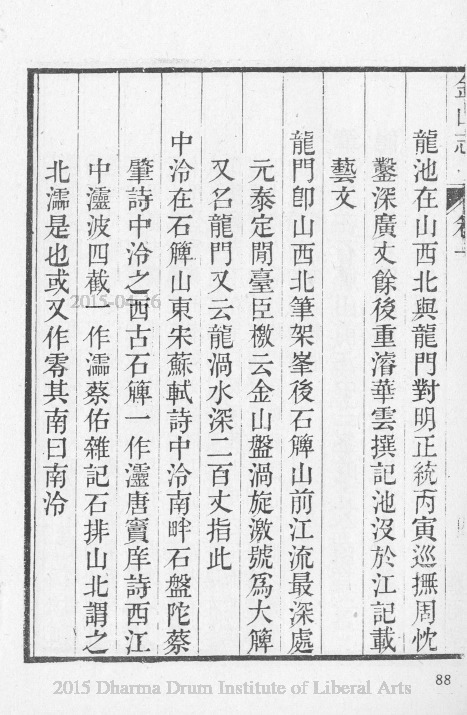 金山志
卷一
龍池在山西北與龍門對明正統丙寅巡撫周忱
鑿深廣丈餘後重濬華雲撰記池沒於江記載
藝文
龍門卽山西北筆架峯後石簰山前江流最深處
元泰定閒臺臣檄云金山盤渦旋激號爲大簰
又名龍門又云龍渦水深二百丈指此
中泠在石簰山東宋蘇軾詩中泠南畔石盤陀蔡
肇詩中泠之西古石簰一作灃唐竇庠詩西江
中灃波四截一作濡蔡佑雜記石排山北謂之
北濡是也或又作零其南曰南泠
88
2015-04-16
2015 Dharma Drum Institute of Liberal Arts